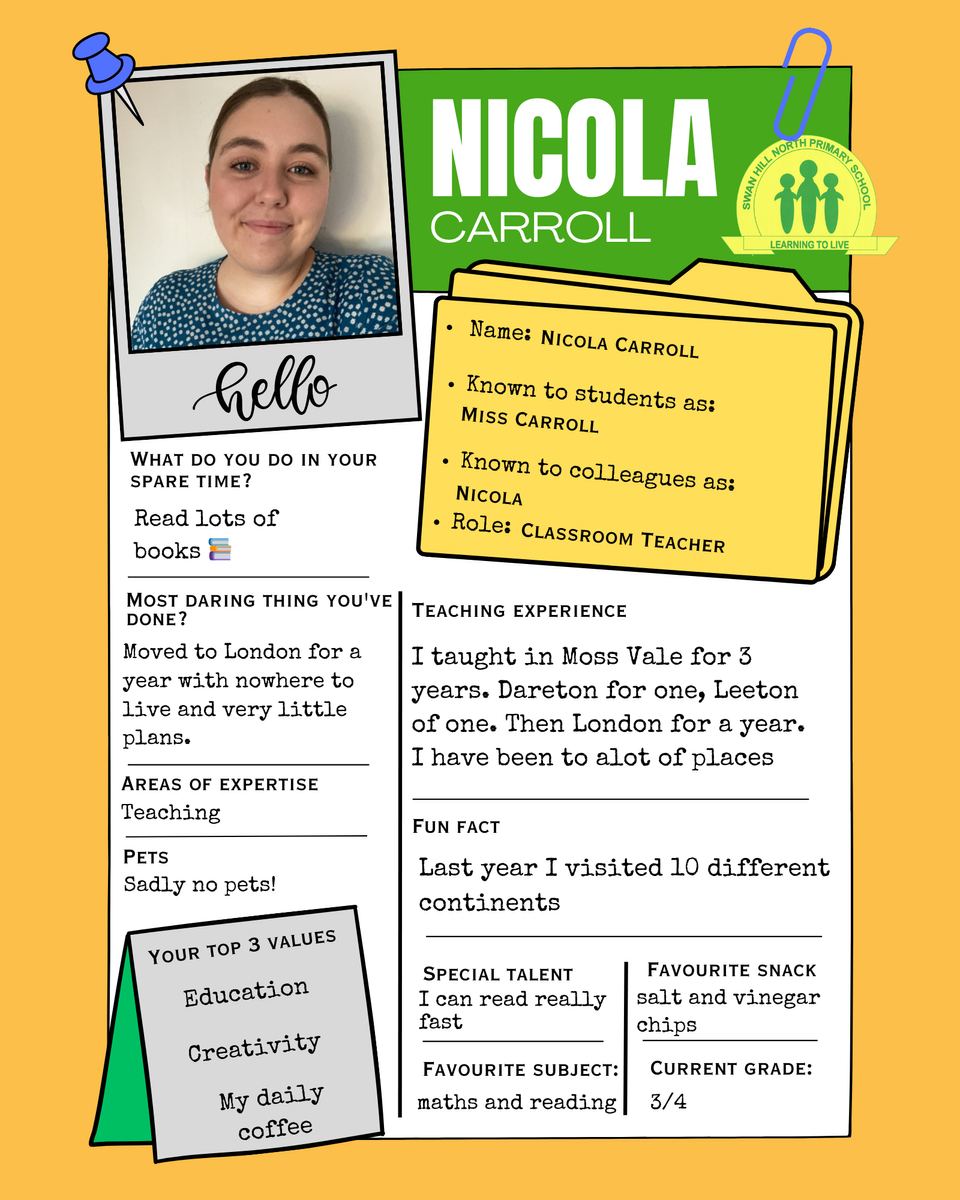 NICOLA
CARROLL
SWAN HILL NORTH PRIMARY SCHOOL
LEARNING TO LIVE
hello
• Name: Nicola Carroll
• Known to students as:
Miss Carroll
• Known to colleagues as:
Nicola
• Role: Classroom Teacher
What do you do in your
spare time?
Read lots of
books 📚
Most daring thing you've
done?
Moved to London for a
year with nowhere to
live and very little
plans.
Areas of expertise
Teaching
Pets
Sadly no pets!
Your top 3 values
Education
Creativity
My daily
coffee
Teaching experience
I taught in Moss Vale for 3
years. Dareton for one, Leeton
of one. Then London for a year.
I have been to alot of places
Fun fact
Last year I visited 10 different
continents
Special talent
I can read really
fast
Favourite snack
salt and vinegar
chips
Favourite subject:
maths and reading
Current grade:
3/4